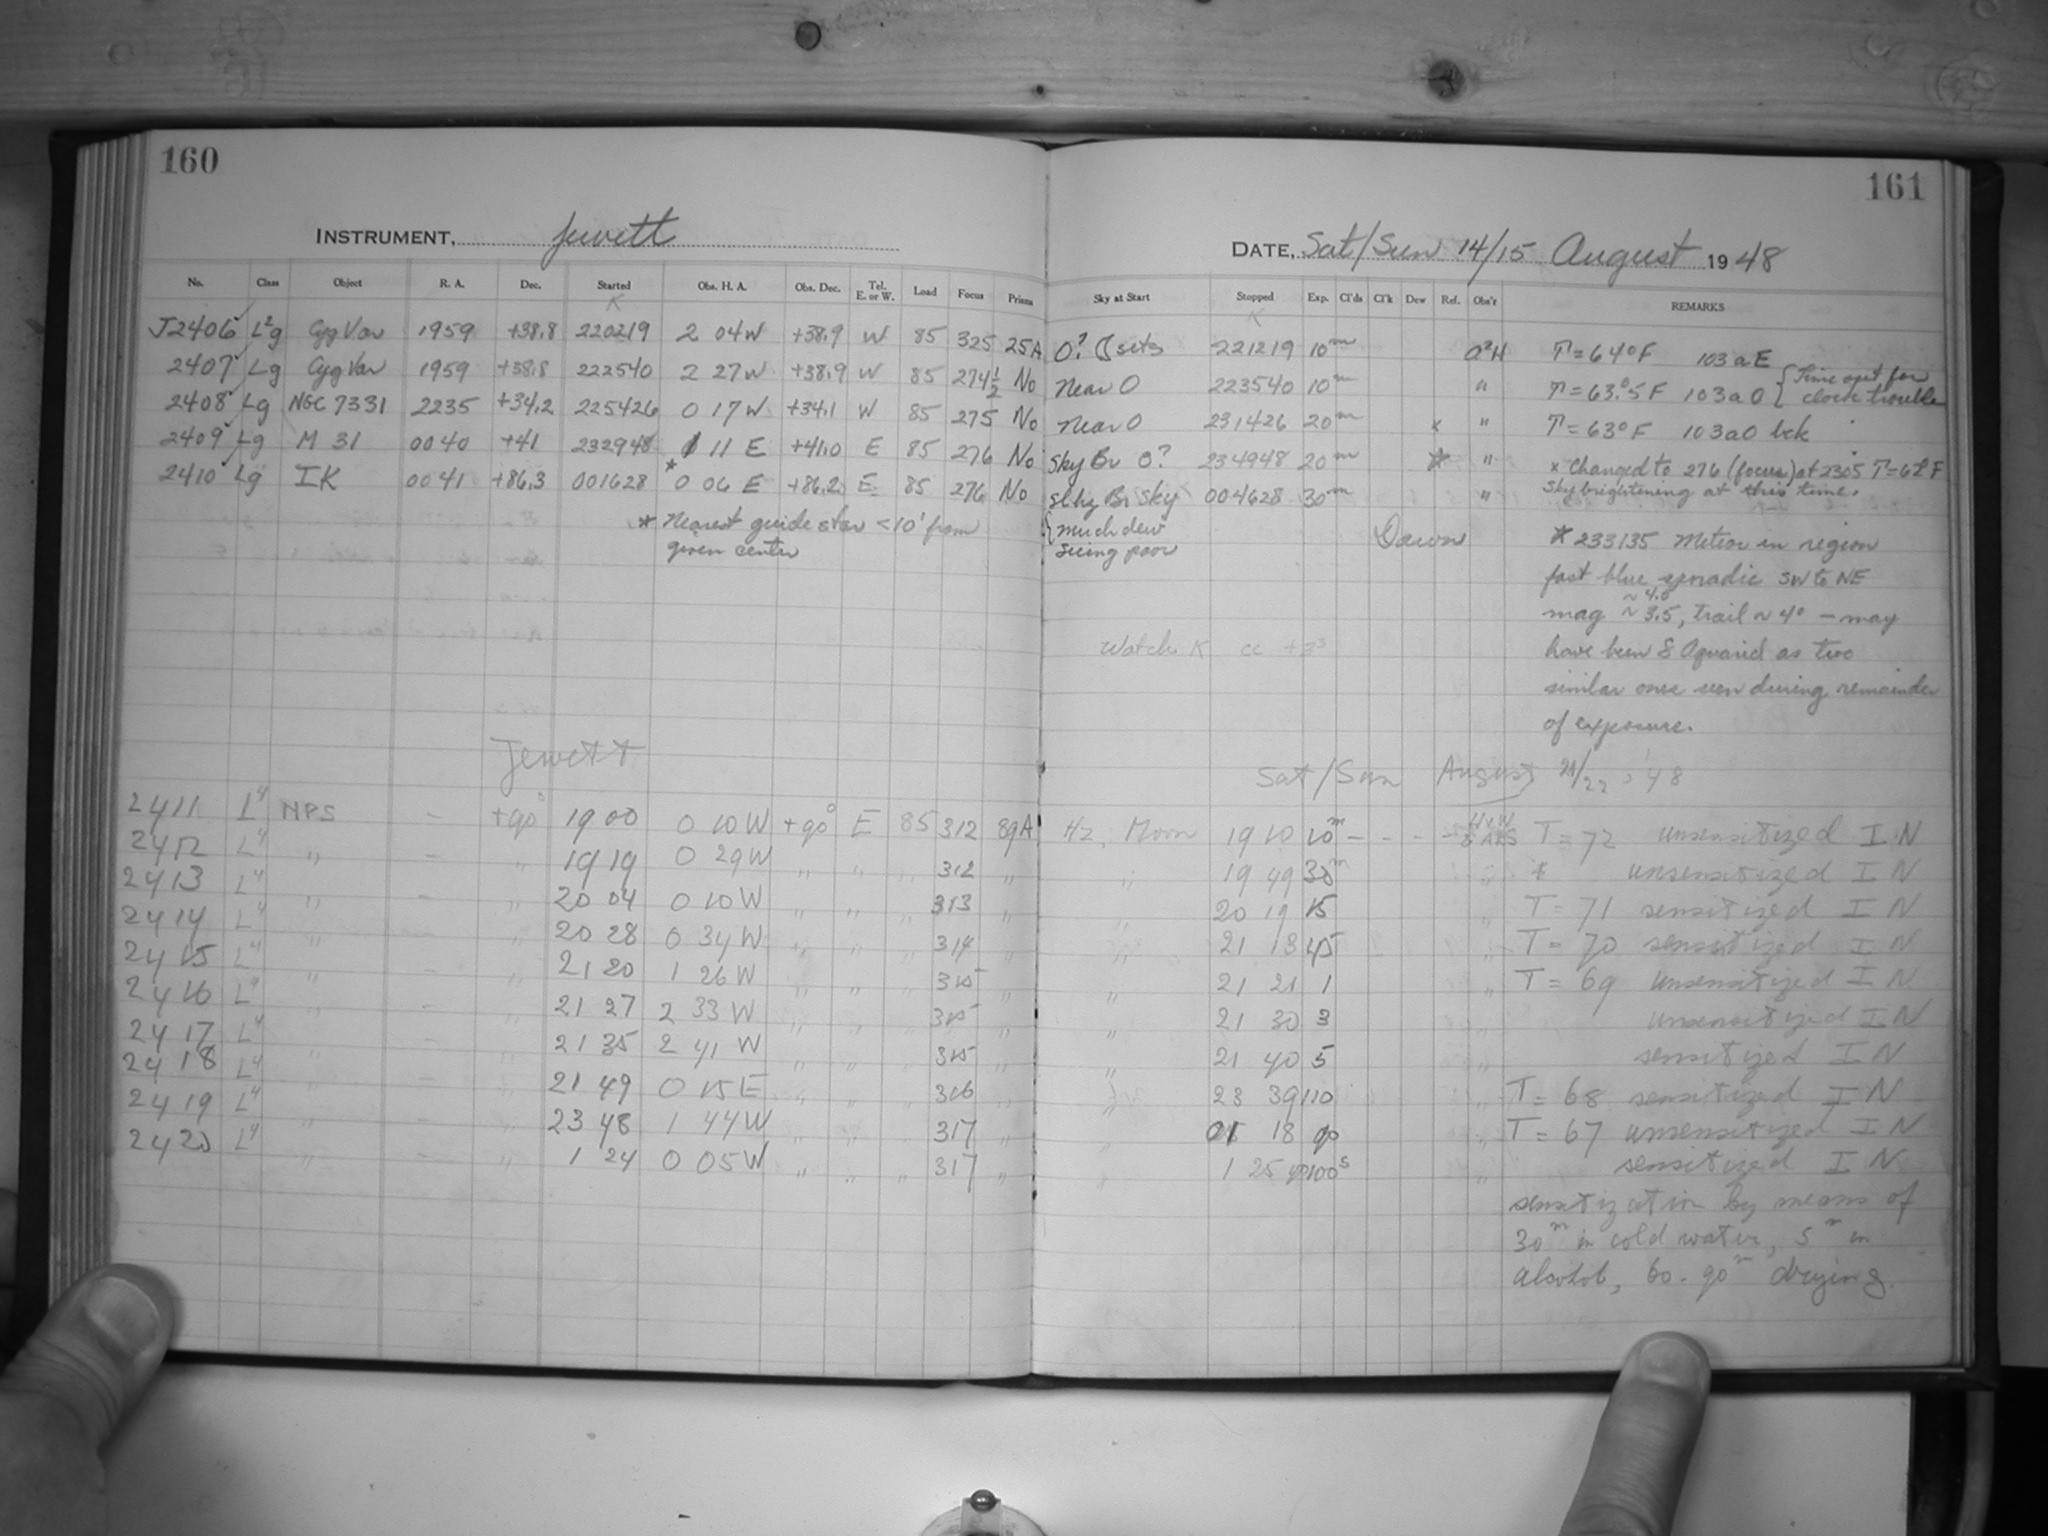 160
161
INSTRUMENT, Jewett
DATE, Sat/Sun 14/15 August 1948
No. Class Object R. A. Dec. Started Obs. H. A. Obs. Dec. Tel. E. or W. Load Focus Prism Sky at Start Stopped Exp. Cl'ds Cl'k Dew Ref. Obs'r REMARKS
K K
J2406 L²g Cyg Var 1959 +38.8 220219 2 04W +38.9 W 85 325 25A O? sets 221219 10m T=64°F 103aE
2407 Lg Cyg Var 1959 +38.8 222540 2 27W +38.9 W 85 274½ No Near O 223540 10m " T=63.°5F 103aO { Time opt for clock trouble
2408 Lg NGC 7331 2235 +34.2 225426 0 17W +34.1 W 85 275 No Near O 231426 20m x " T=63°F 103aO bck
2409 Lg M 31 0040 +41 232948 1 11 E +41.0 E 85 276 No Sky Br O? 234948 20m * " x Changed to 276 (focus) at 2305 T=62F
2410 Lg IK 0041 +86.3 001628 * 0 06 E +86.2 E 85 276 No Slhy Br Sky 004628 30m " Sky brightening at this time.
* Nearest guide star <10' from { much dew Dawn * 233135 Meteor in region
given center seeing poor
fast blue sporadic SW to NE
~4.0
mag ~3.5, trail ~4° – may
Watch K cc +3s have been δ Aquarid as two
similar ones seen during remainder
of exposure.
Jewett Sat/Sun August 21/22, '48
2411 L⁴ NPS - +90° 19 00 0 10W +90° E 85 312 89A Hz, Moon 19 10 10m - - - - T=72 unsensitized I N
2412 L⁴ " - " 19 19 0 29W " " " 312 " " 19 49 30m " * unsensitized I N
2413 L⁴ " - " 20 04 0 10W " " " 313 " " 20 19 15 " T=71 sensitized I N
2414 L⁴ " - " 20 28 0 34W " " " 314 " " 21 13 45 " T=70 sensitized I N
2415 L⁴ " - " 21 20 1 26W " " " 315 " " 21 21 1 " T=69 unsensitized I N
2416 L⁴ " - " 21 27 2 33W " " " 315 " " 21 30 3 " unsensitized I N
2417 L⁴ " - " 21 35 2 41 W " " " 315 " " 21 40 5 " sensitized I N
2418 L⁴ " - " 21 49 0 15E " " " 316 " " 23 39 110 " T=68 sensitized I N
2419 L⁴ " - " 23 48 1 44W " " " 317 " " 01 18 90 " T=67 unsensitized I N
2420 L⁴ " - " 1 24 0 05W " " " 317 " " 1 25 40 100s " sensitized I N
sensitization by means of
30m in cold water, 5m in
alcohol, 60-90m drying.